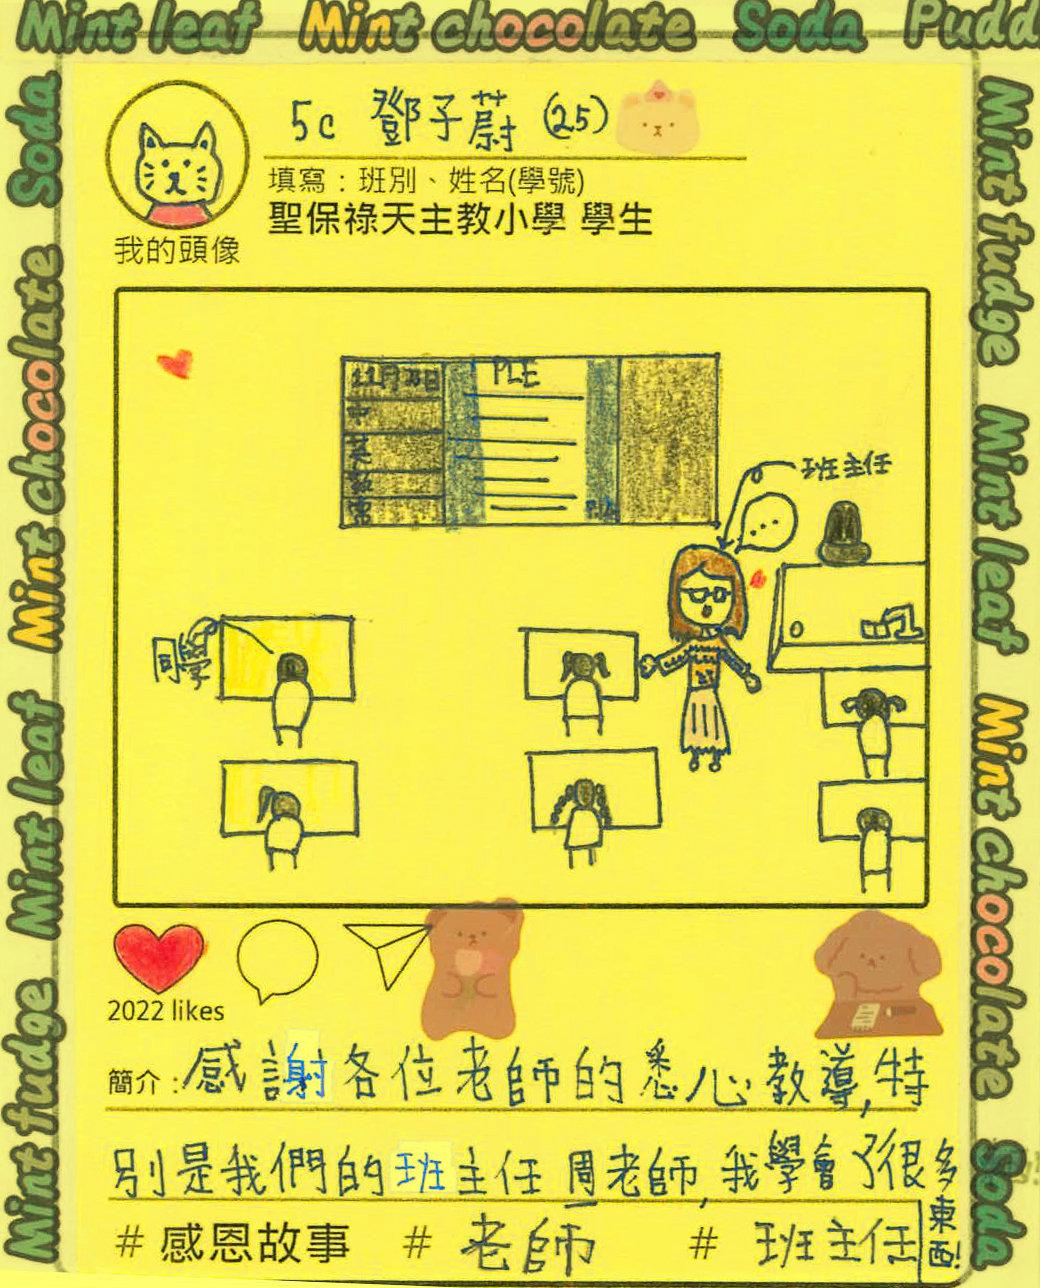 Mint leaf Mint chocolate Soda Pudd
Soda
Mint chocolate
Mint leaf
Mint fudge
Mint fudge
Mint leaf
Mint chocolate
Soda
5c 鄧子蔚 (25)
填寫：班別、姓名(學號)
聖保祿天主教小學 學生
我的頭像
PLE
中
班主任
同學
2022 likes
簡介：感謝各位老師的悉心教導,特
別是我們的班主任周老師,我學會了很多
東西!
# 感恩故事 # 老師 # 班主任